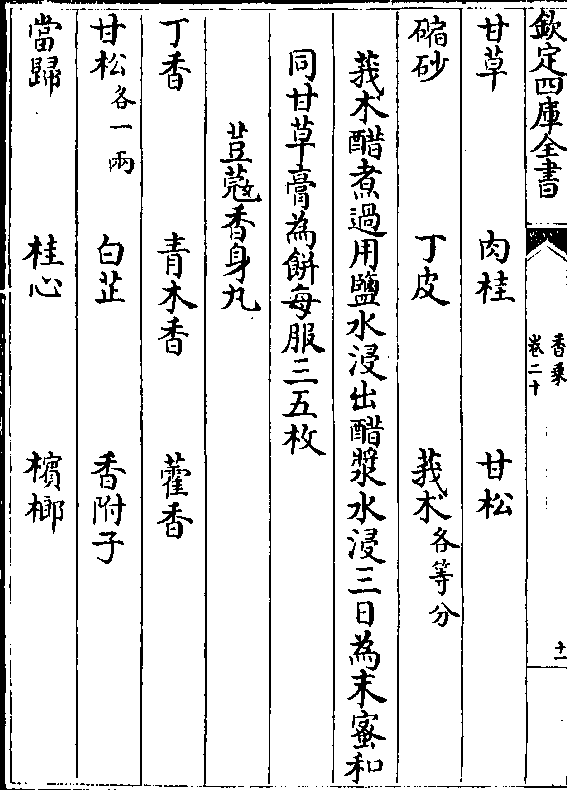 欽定四庫全書
香乘
卷二十
十一
甘草 肉桂 甘松
縮砂 丁皮 莪木各等分
莪木醋煮過用鹽水浸出醋漿水浸三日為末蜜和
同甘草膏為餅每服三五枚
荳蔻香身丸
丁香 青木香 藿香
甘松各一兩 白芷 香附子
當歸 桂心 檳榔